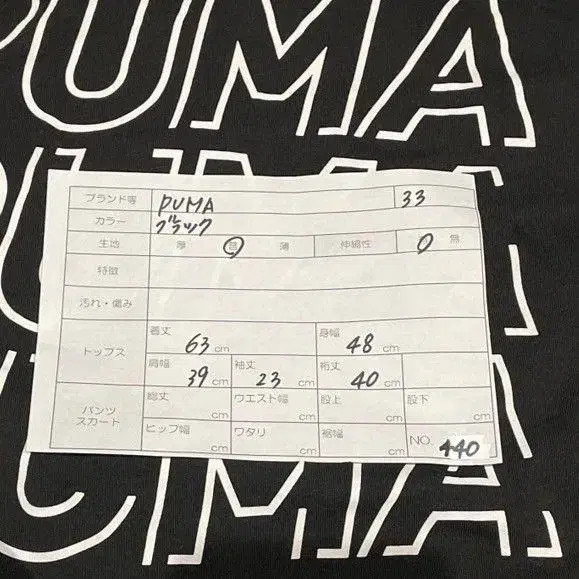 PUMA
PUMA
ブランド等 PUMA 33
カラー ブラック
生地 厚 普 薄 伸縮性 無
特徴
汚れ・傷み
トップス 着丈 63 cm 身幅 48 cm
肩幅 39 cm 袖丈 23 cm 裄丈 40 cm
パンツ スカート 総丈 cm ウエスト幅 cm 股上 cm 股下 cm
ヒップ幅 cm ワタリ cm 裾幅 cm NO. 440
PUMA